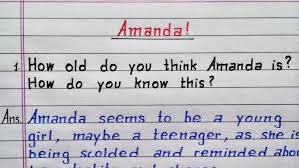 Amanda!
1. How old do you think Amanda is?
How do you know this?
Ans. Amanda seems to be a young
girl, maybe a teenager, as she is
being scolded and reminded about